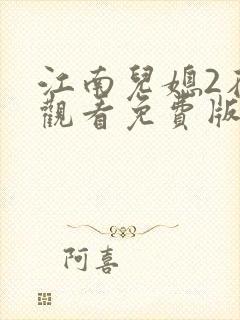 江南兒媳2
觀看免費版
阿喜